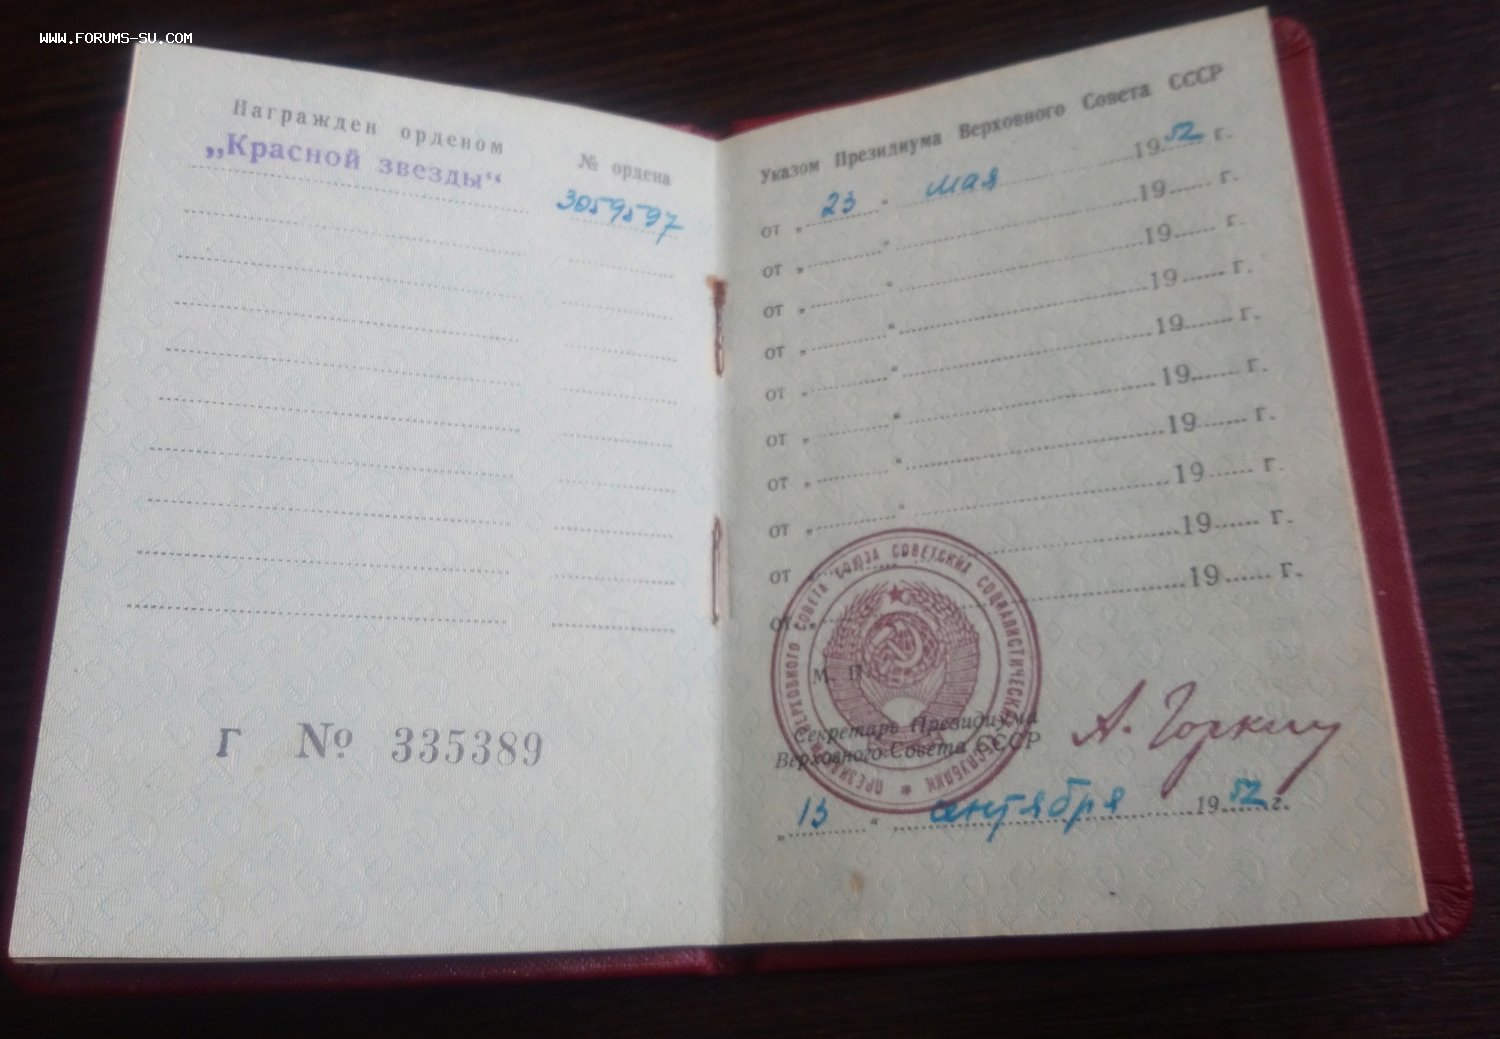 WWW.FORUMS-SU.COM
Награжден орденом
№ ордена
„Красной звезды“
3059597
Г № 335389
Указом Президиума Верховного Совета СССР
от „ 23 “ мая 1952 г.
от „ “ 19 г.
от „ “ 19 г.
от „ “ 19 г.
от „ “ 19 г.
от „ “ 19 г.
от „ “ 19 г.
от „ “ 19 г.
от „ “ 19 г.
от „ 19 г.
ПРЕЗИДИУМ ВЕРХОВНОГО СОВЕТА СОЮЗА СОВЕТСКИХ СОЦИАЛИСТИЧЕСКИХ РЕСПУБЛИК
М. П.
Секретарь Президиума
Верховного Совета СССР
А. Горкин
„ 13 “ сентября 1952 г.